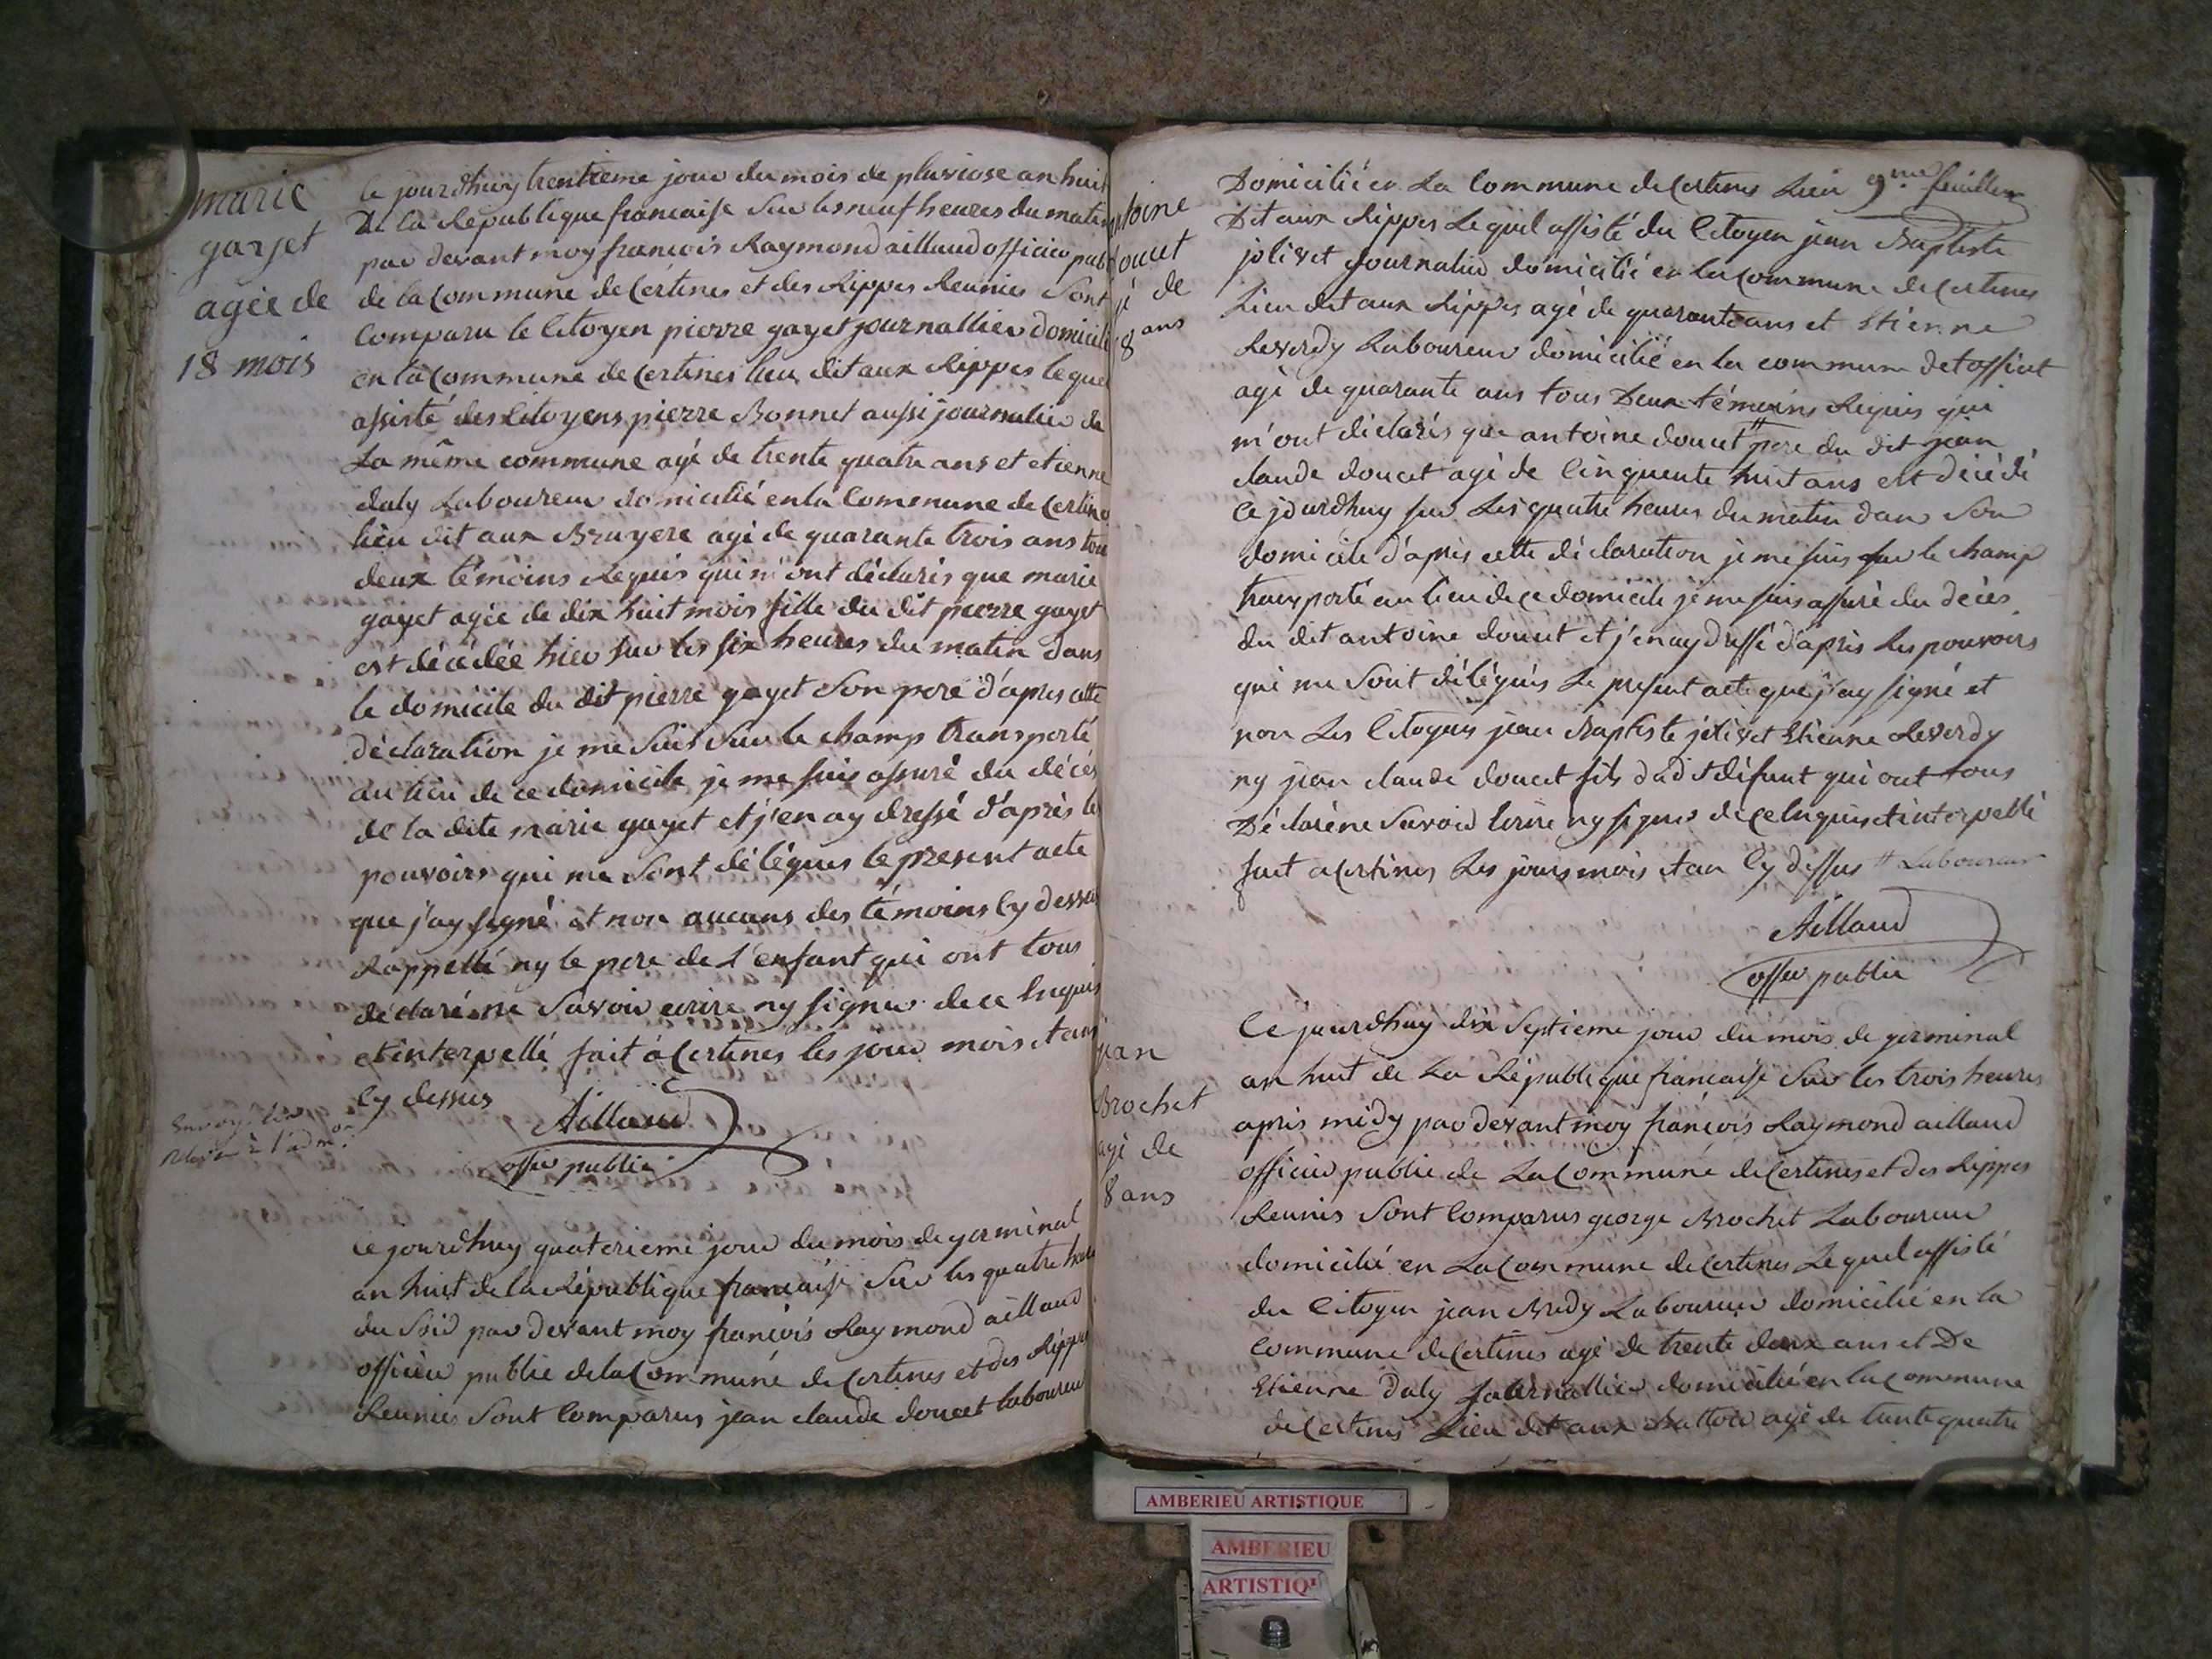 marie
gayet
agée de
18 mois
le jourdhuy trentieme jour du mois de pluviose an huit
de la République francaise sur les neuf heures du matin
par devant moy francois Raymond aillaud officier publ
de la commune de Certines et des Rippes Reunies Sont
Comparu le Citoyen pierre gayet journallier domicili
en la commune de Certines lieu dit aux Rippes lequel
assisté des Citoyens pierre Bonnet aussi journalier de
La même commune agé de trente quatre ans et etienne
daly Laboureur domicilié en la Commune de Certine
lieu dit aux Bruyere agé de quarante trois ans tou
deux témoins Requis qui m'ont déclarés que marie
gayet agée de dix huit mois fille du dit pierre gayet
est décédée hier sur les six heures du matin dans
le domicile du dit pierre gayet Son pere d'apres cette
déclaration je me suis sur le champ transporté
au lieu de ce domicile je me suis assuré du décés
de la dite marie gayet et j'en ay dressé d'après le
pouvoirs qui me Sont délégués le present acte
que j'ay signé et non aucuns des témoins Cy dessus
Rappellé ny le pere de L'enfant qui ont tous
déclaré ne Savoir ecrire ny signer de ce Enquis
et interpellé fait à Certines les jour mois et an
Cy dessus
Aillaud
offier public
à l'adm.on
Ce jourdhuy quatorieme jour du mois de germinal
an huit de la République francaise Sur les quatre heu
du Soir par devant moy francois Raymond aillaud
officier public de la Commune de Certines et des Rippes
Reunies Sont Comparus jean claude doucet laboureur
ntoine
doucet
gé de
8 ans
9me feuillet
Domicilié en La Commune de Certines Lieu
Dit aux Rippes Lequel assisté du Citoyen jean Baptiste
jolivet Journalier domicilié en la Commune de Certines
Lieu dit aux Rippes agé de quarante ans et Etienne
Reverdy Laboureur domicilié en la commune de tossiat
agé de quarante ans tous Deux témoins Requis qui
m'ont déclarés que antoine doucet # pere du dit jean
claude doucet agé de Cinquente huit ans est décédé
Ce jourdhuy sur Les quatre heures du matin dans Son
domicile d'après cette déclaration je me suis sur le champ
transporté au lieu de ce domicile je me suis assuré du décès
du dit antoine doucet et j'en ay dressé d'après Les pouvoirs
qui me Sont délégués Le present acte que j'ay signé et
non Les Citoyens jean Baptiste jolivet Etienne Reverdy
ny jean claude doucet fils dudit défunt qui ont tous
Déclaré ne Savoir Ecrire ny signer de ce Enquis et interpellé
fait a Certines Les jours mois et an Cy dessus # Laboureur
Aillaud
offier public
jean
Brochet
agé de
8 ans
Ce jourdhuy dix Septieme jour du mois de germinal
an huit de La République francaise Sur les trois heures
apres midy par devant moy francois Raymond aillaud
officier public de La Commune de Certines et des Rippes
Reunies Sont Comparus george Brochet Laboureur
domicilié en La Commune de Certines Lequel assisté
du Citoyen jean Laboureur domicilié en la
Commune de Certines agé de trente deux ans et De
Etienne Daly Journallier domicilié en la Commune
de Certines Lieu dit aux agé de trente quatre
AMBERIEU ARTISTIQUE
AMBERIEU
ARTISTIQU